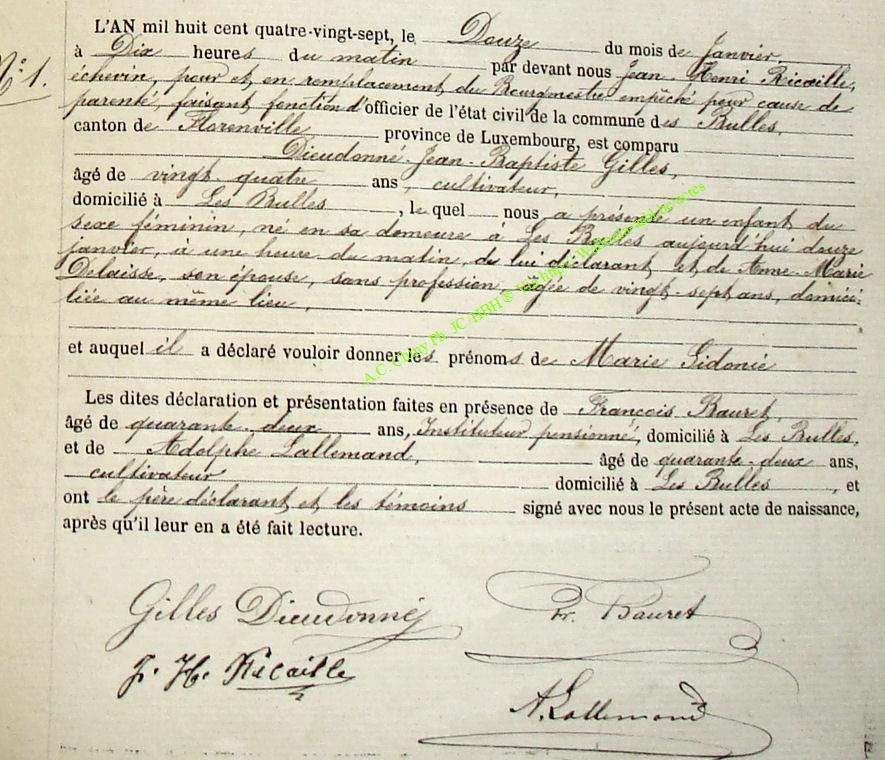 L'AN mil huit cent quatre-vingt-sept, le Douze du mois de Janvier,
N° 1. à Dix heures du matin par devant nous Jean-Henri Ricaille,
échevin, pour et en remplacement du Bourgmestre empêché pour cause de
parenté, faisant fonction d'officier de l'état civil de la commune des Bulles,
canton de Florenville province de Luxembourg, est comparu
Dieudonné-Jean-Baptiste Gilles,
âgé de vingt-quatre ans, cultivateur,
domicilié à Les Bulles, le quel nous a présenté un enfant du
sexe féminin, né en sa demeure à Les Bulles aujourd'hui douze
janvier, à une heure du matin, de lui déclarant et de Anne-Marie
Delaisse, son épouse, sans profession, âgée de vingt-sept ans, domici-
liée au même lieu,
et auquel il a déclaré vouloir donner les prénoms de Marie Sidonie
Les dites déclaration et présentation faites en présence de François Bauret,
âgé de quarante-deux ans, Instituteur pensionné, domicilié à Les Bulles,
et de Adolphe Lallemand, âgé de quarante-deux ans,
cultivateur domicilié à Les Bulles, et
ont le père déclarant et les témoins signé avec nous le présent acte de naissance,
après qu'il leur en a été fait lecture.
Gilles Dieudonné Fr. Bauret
J. H. Ricaille
A. Lallemand
A.C. Chiny Ph. JC/HBH ®